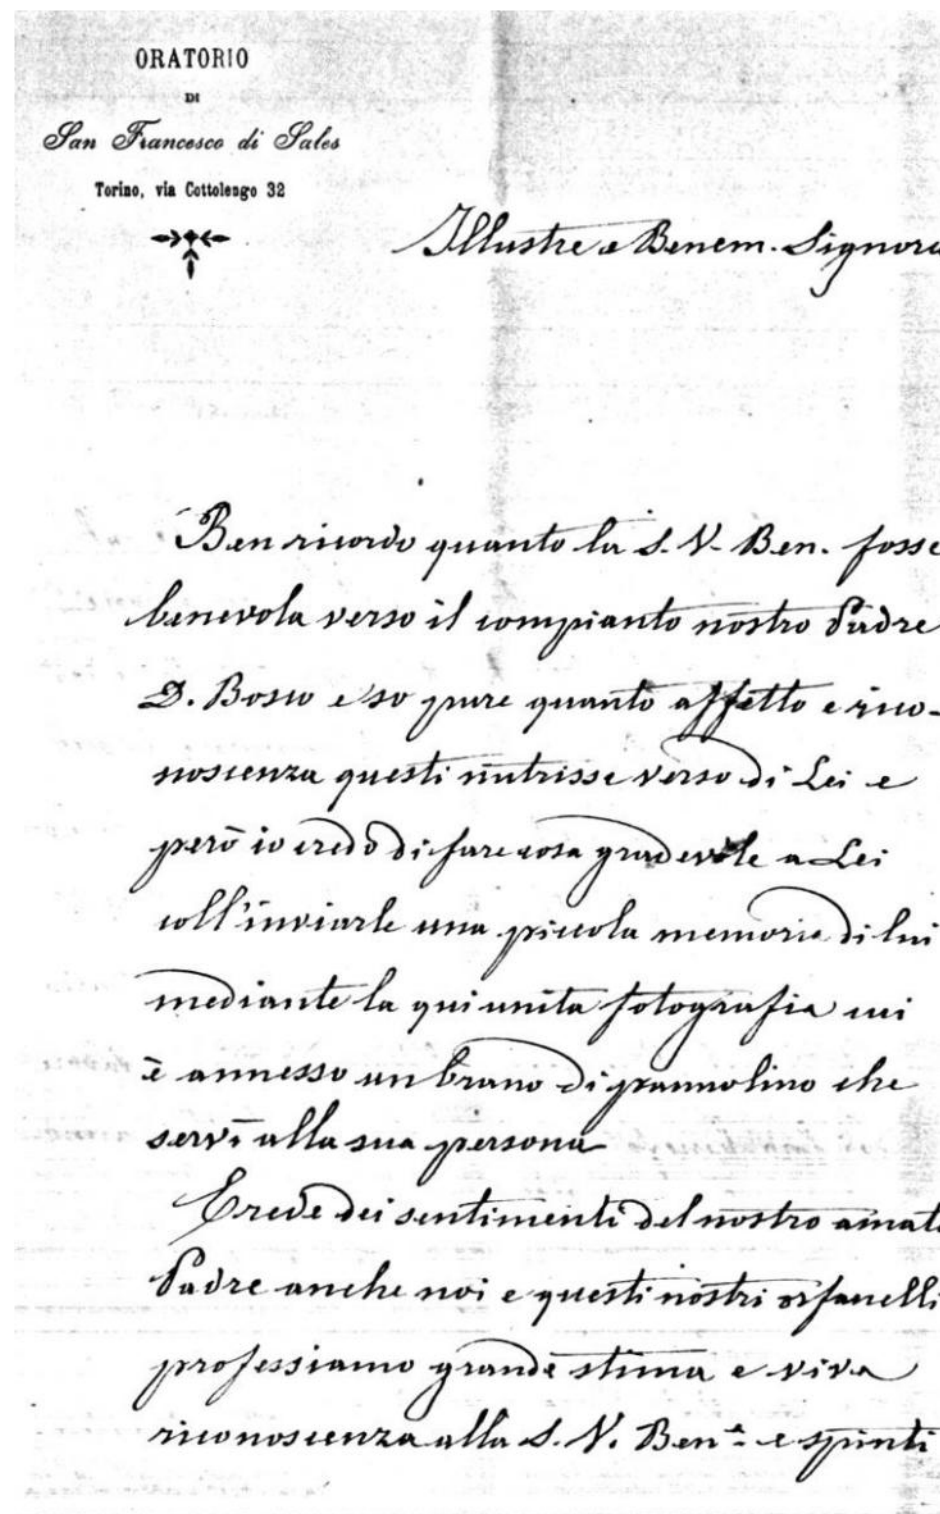 ORATORIO
DI
San Francesco di Sales
Torino, via Cottolengo 32
Illustre e Benem. Signora
Ben ricordo quanto la S. V. Ben. fosse
benevola verso il compianto nostro Padre
D. Bosco e so pure quanto affetto e rico-
noscenza questi nutrisse verso di Lei e
però io credo di fare cosa gradevole a Lei
coll'inviarle una piccola memoria di lui
mediante la qui unita fotografia cui
è annesso un brano di pannolino che
servì alla sua persona
Erede dei sentimenti del nostro amato
Padre anche noi e questi nostri orfanelli
professiamo grande stima e viva
riconoscenza alla S. V. Ben.ª e spinti